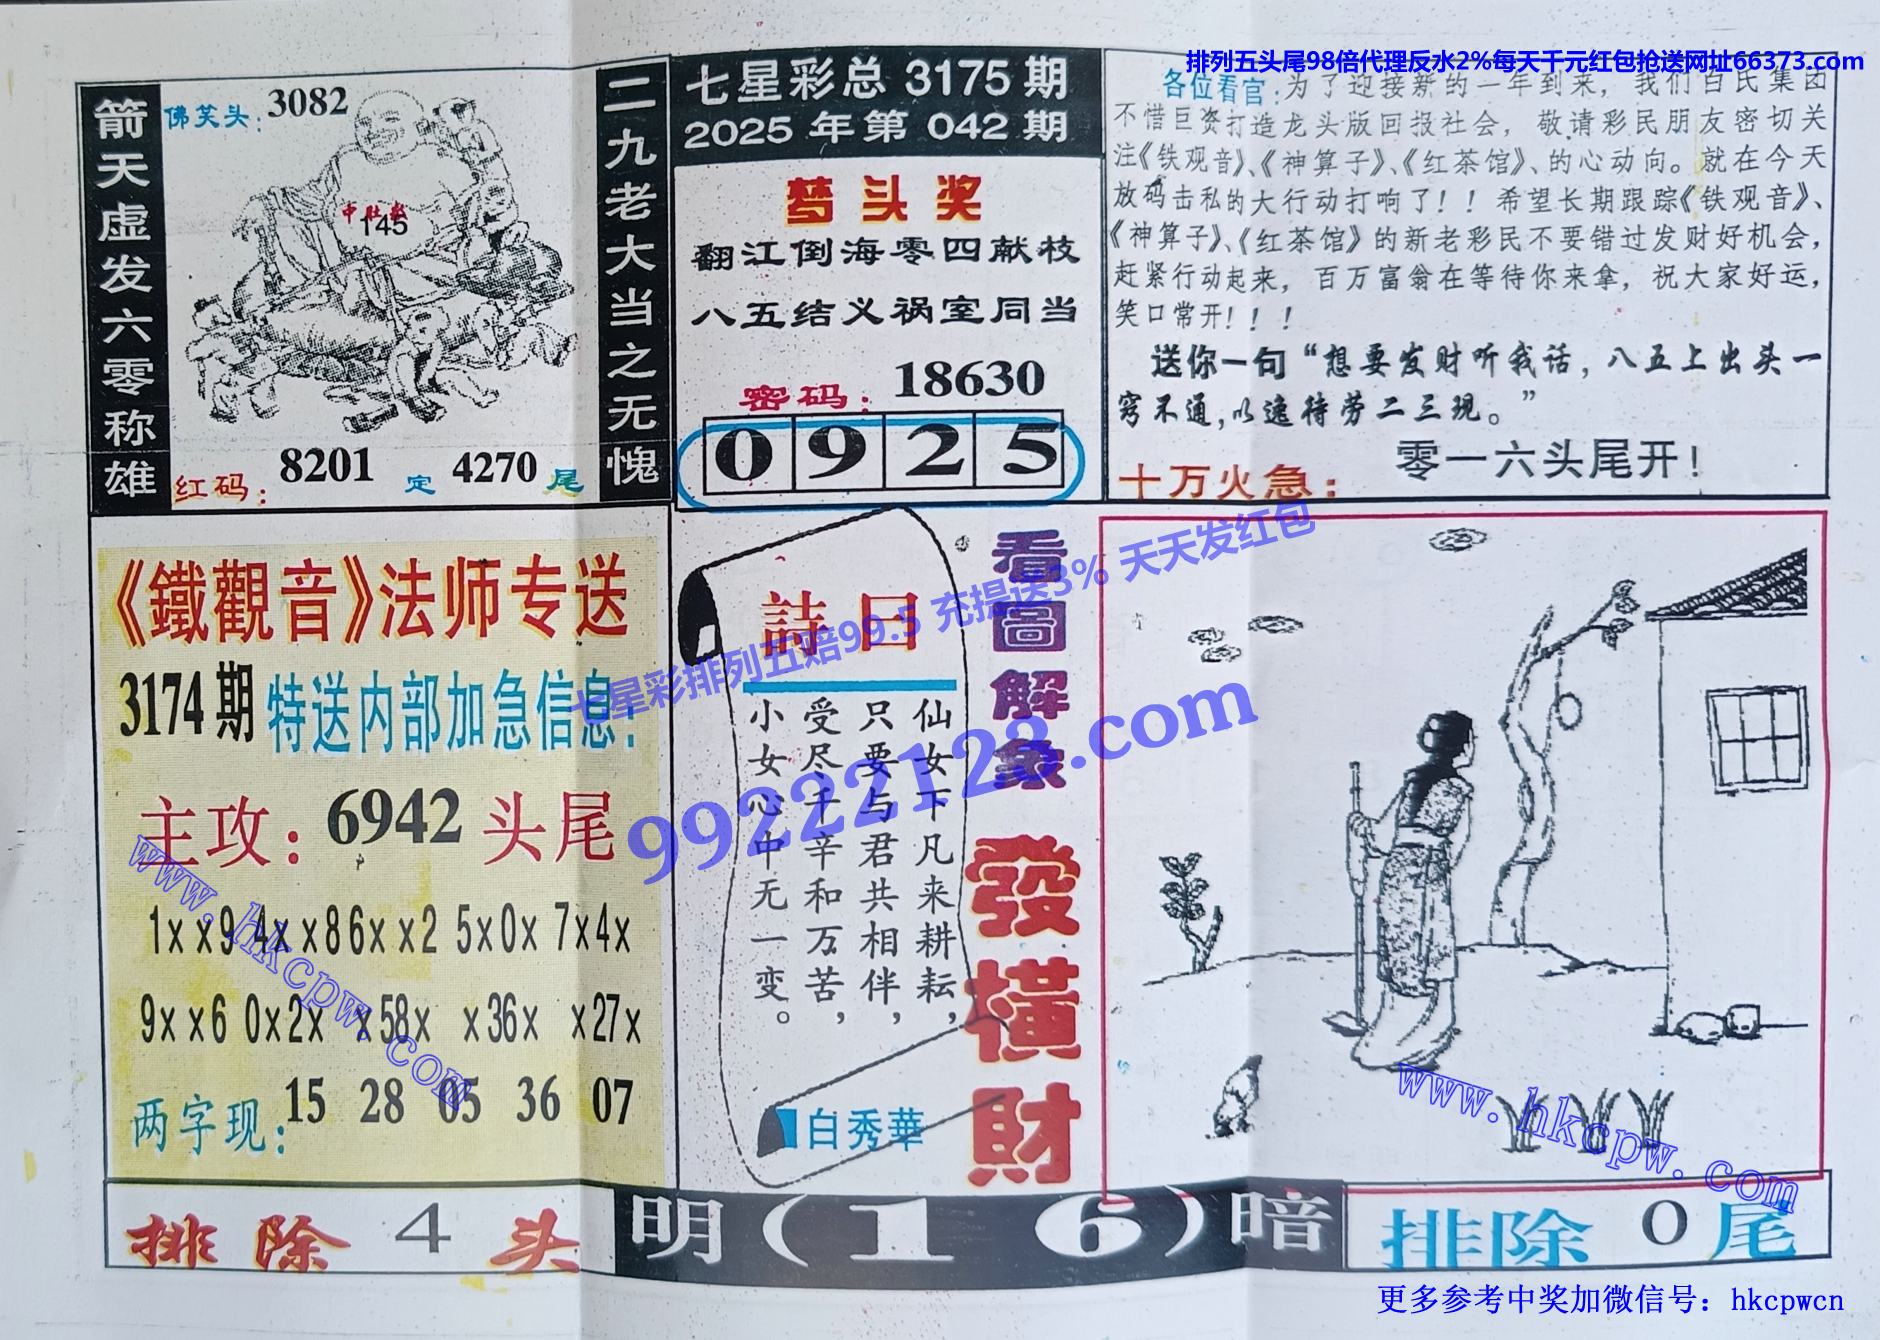 排列五头尾98倍代理反水2%每天千元红包抢送网址66373.com
箭天虚发六零称雄
佛笑头：3082
中肚数
145
红码：8201 定 4270 尾
二九老大当之无愧
七星彩总 3175 期
2025 年第 042 期
梦头奖
翻江倒海零四献枝
八五结义祸室同当
密码：18630
0 9 2 5
各位看官：为了迎接新的一年到来，我们百氏集团
不惜巨资打造龙头版回报社会，敬请彩民朋友密切关
注《铁观音》、《神算子》、《红茶馆》、的心动向。就在今天
放码击私的大行动打响了！！希望长期跟踪《铁观音》、
《神算子》、《红茶馆》的新老彩民不要错过发财好机会，
赶紧行动起来，百万富翁在等待你来拿，祝大家好运，
笑口常开！！！
送你一句“想要发财听我话，八五上出头一
穷不通，以逸待劳二三现。”
十万火急：零一六头尾开！
《鐵觀音》法师专送
3174期 特送内部加急信息：
主攻：6942 头尾
1xx9 4xx8 6xx2 5x0x 7x4x
9xx6 0x2x x58x x36x x27x
两字现：15 28 05 36 07
詩曰
仙女下凡来耕耘，
只要与君共相伴，
受尽千辛和万苦，
小女心中无一变。
白秀華
看圖解象
發橫財
七星彩排列五赔99.5 充提送3% 天天发红包
99222123.com
www.hkcpw.com
www.hkcpw.com
排除 4 头
明（1 6）暗
排除 0 尾
更多参考中奖加微信号：hkcpwcn